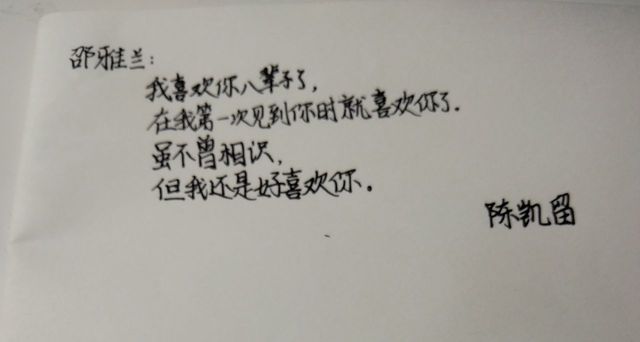 邵雅兰：
我喜欢你八辈子了，
在我第一次见到你时就喜欢你了.
虽不曾相识，
但我还是好喜欢你。
陈凯留